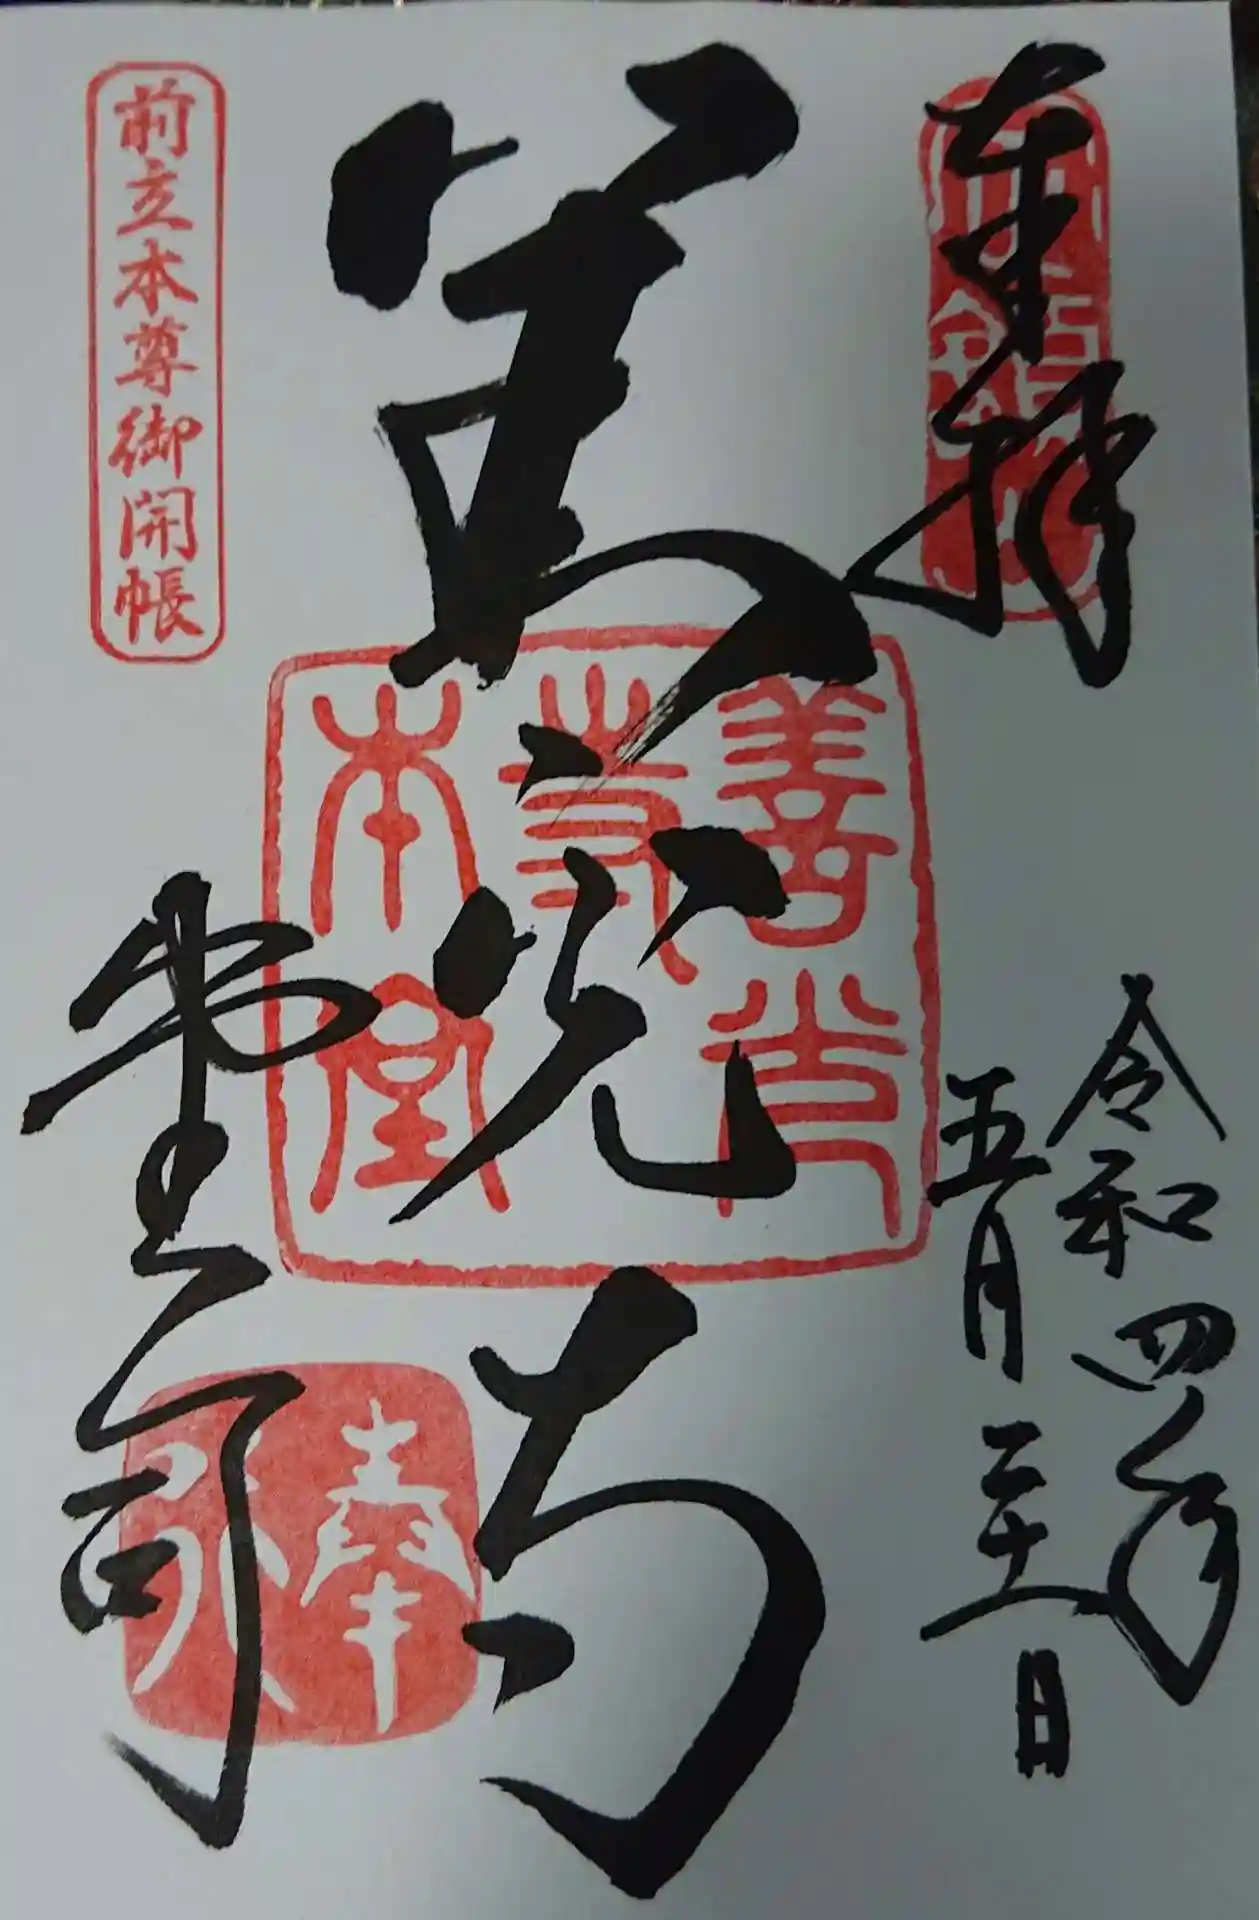 奉拝
令和四年
五月二十一日
善光寺
堂司
前立本尊御開帳
善光
寺
本堂